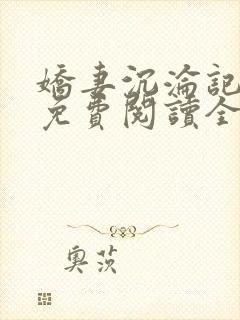 嬌妻沉淪記
免費閱讀全
奧茨